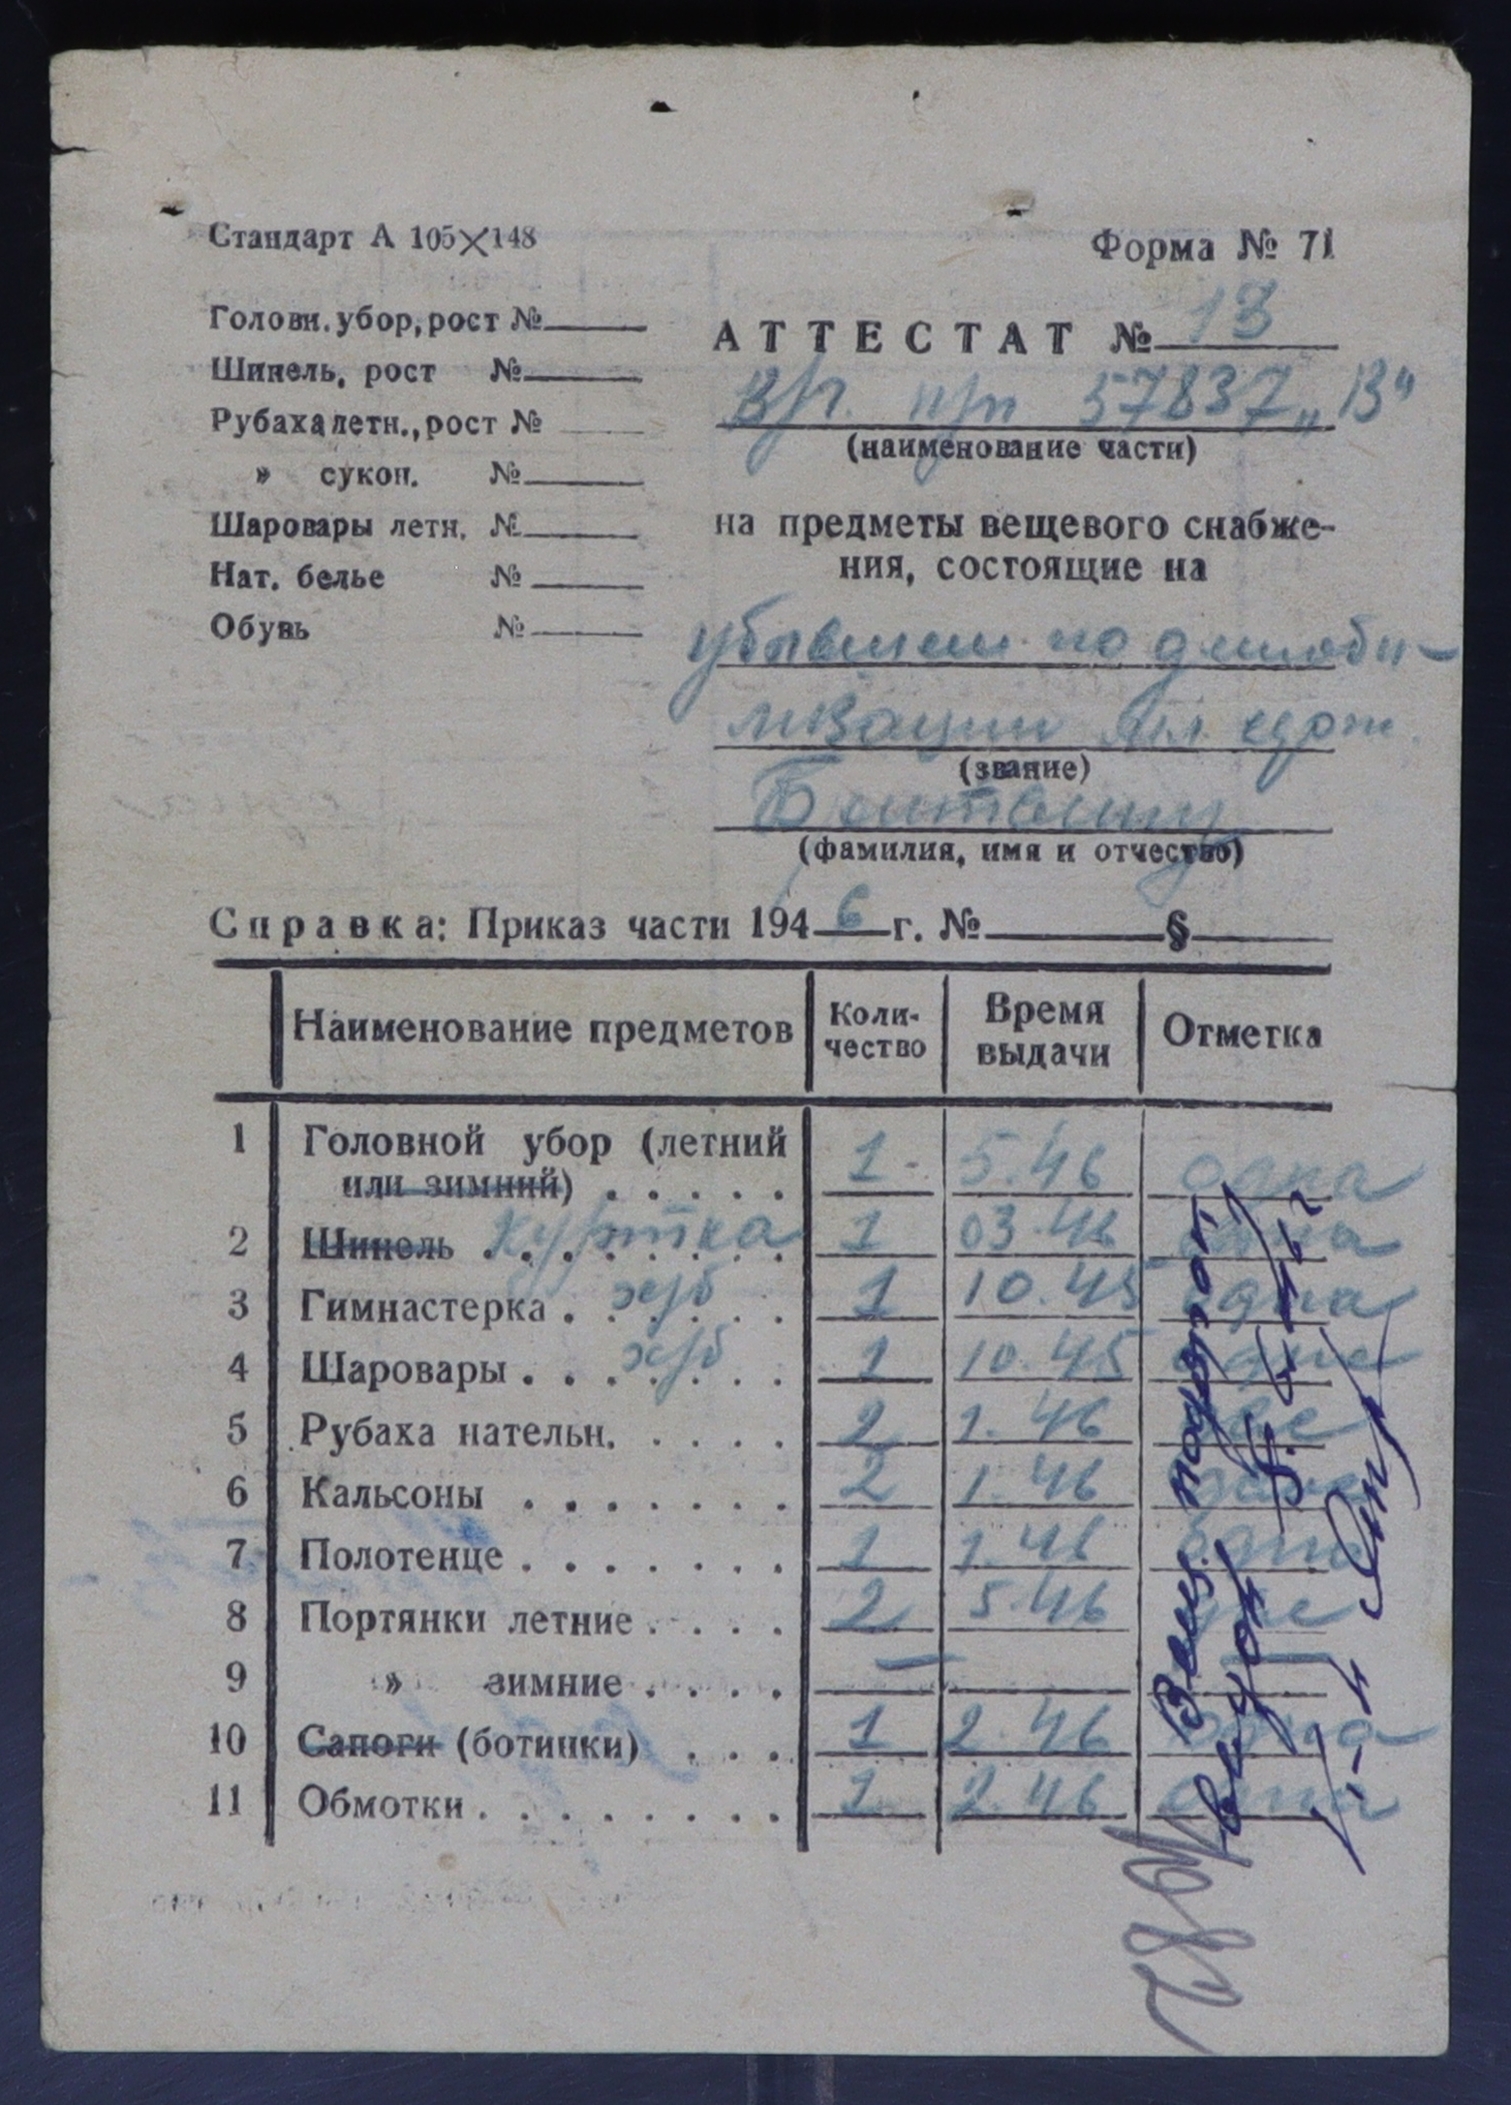 Стандарт А 105×148
Форма № 71
Головн. убор, рост №
Шинель, рост №
Рубаха летн., рост №
» сукон. №
Шаровары летн. №
Нат. белье №
Обувь №
АТТЕСТАТ № 13
п/п 57837 „В"
(наименование части)
на предметы вещевого снабже-
ния, состоящие на
убывшем по демоби-
лизации
(звание)
(фамилия, имя и отчество)
Справка: Приказ части 1946 г. № §
Наименование предметов Коли-чество Время выдачи Отметка
1 Головной убор (летний
или зимний) 1 5.46 одна
2 Шинель куртка 1 03.46 одна
3 Гимнастерка х/б 1 10.45 одна
4 Шаровары х/б 1 10.45 одне
5 Рубаха нательн. 2 1.46 две
6 Кальсоны 2 1.46
7 Полотенце 1 1.46 одно
8 Портянки летние 2 5.46 две
9 » зимние — —
10 Сапоги (ботинки) 1 2.46 одна
11 Обмотки 1 2.46 одна
Вещ.